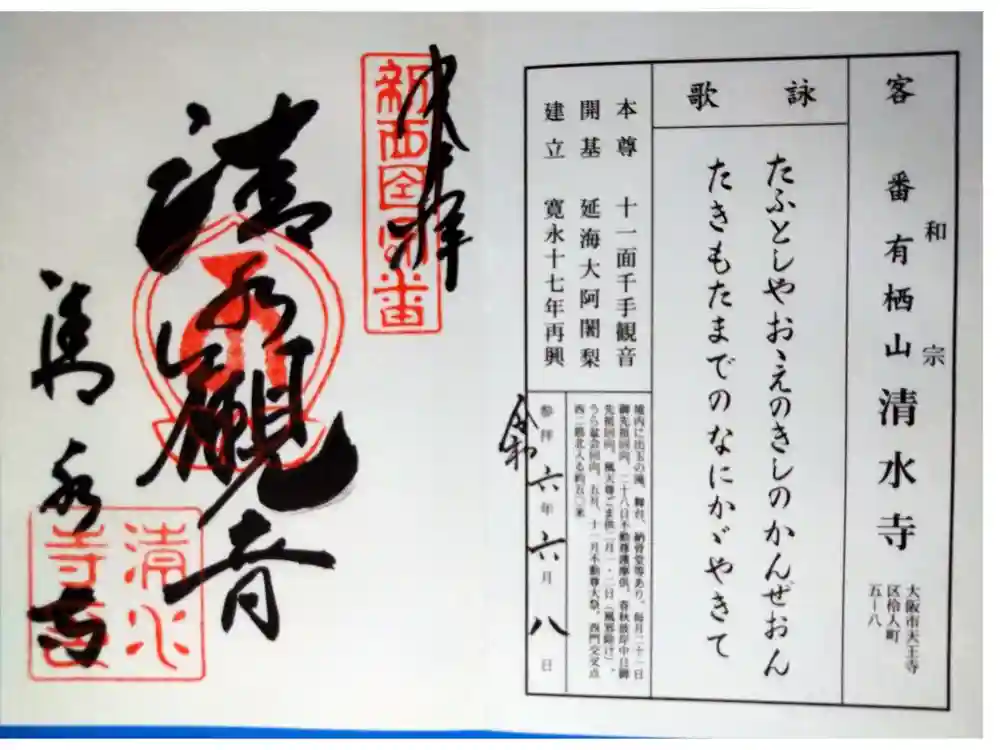 客番
和宗
有栖山清水寺
大阪市天王寺
区伶人町
五ー八
詠歌
たふとしやおゝえのきしのかんぜおん
たきもたまでのなにかゞやきて
本尊 十一面千手観音
開基 延海大阿闍梨
建立 寛永十七年再興
境内に出玉の滝、舞台、納骨堂等あり。毎月二十一日
御先祖回向、二十八日不動尊護摩供、春秋彼岸中日御
先祖回向、風天尊ごま供二月一・二日（風邪除け）、
うら盆会回向、五月、十一月不動尊大祭。西門交叉点
西二筋北入る約五〇米
参拝 令和六年六月八日
奉拝
新西国客番
清水観音
清水寺
清水寺